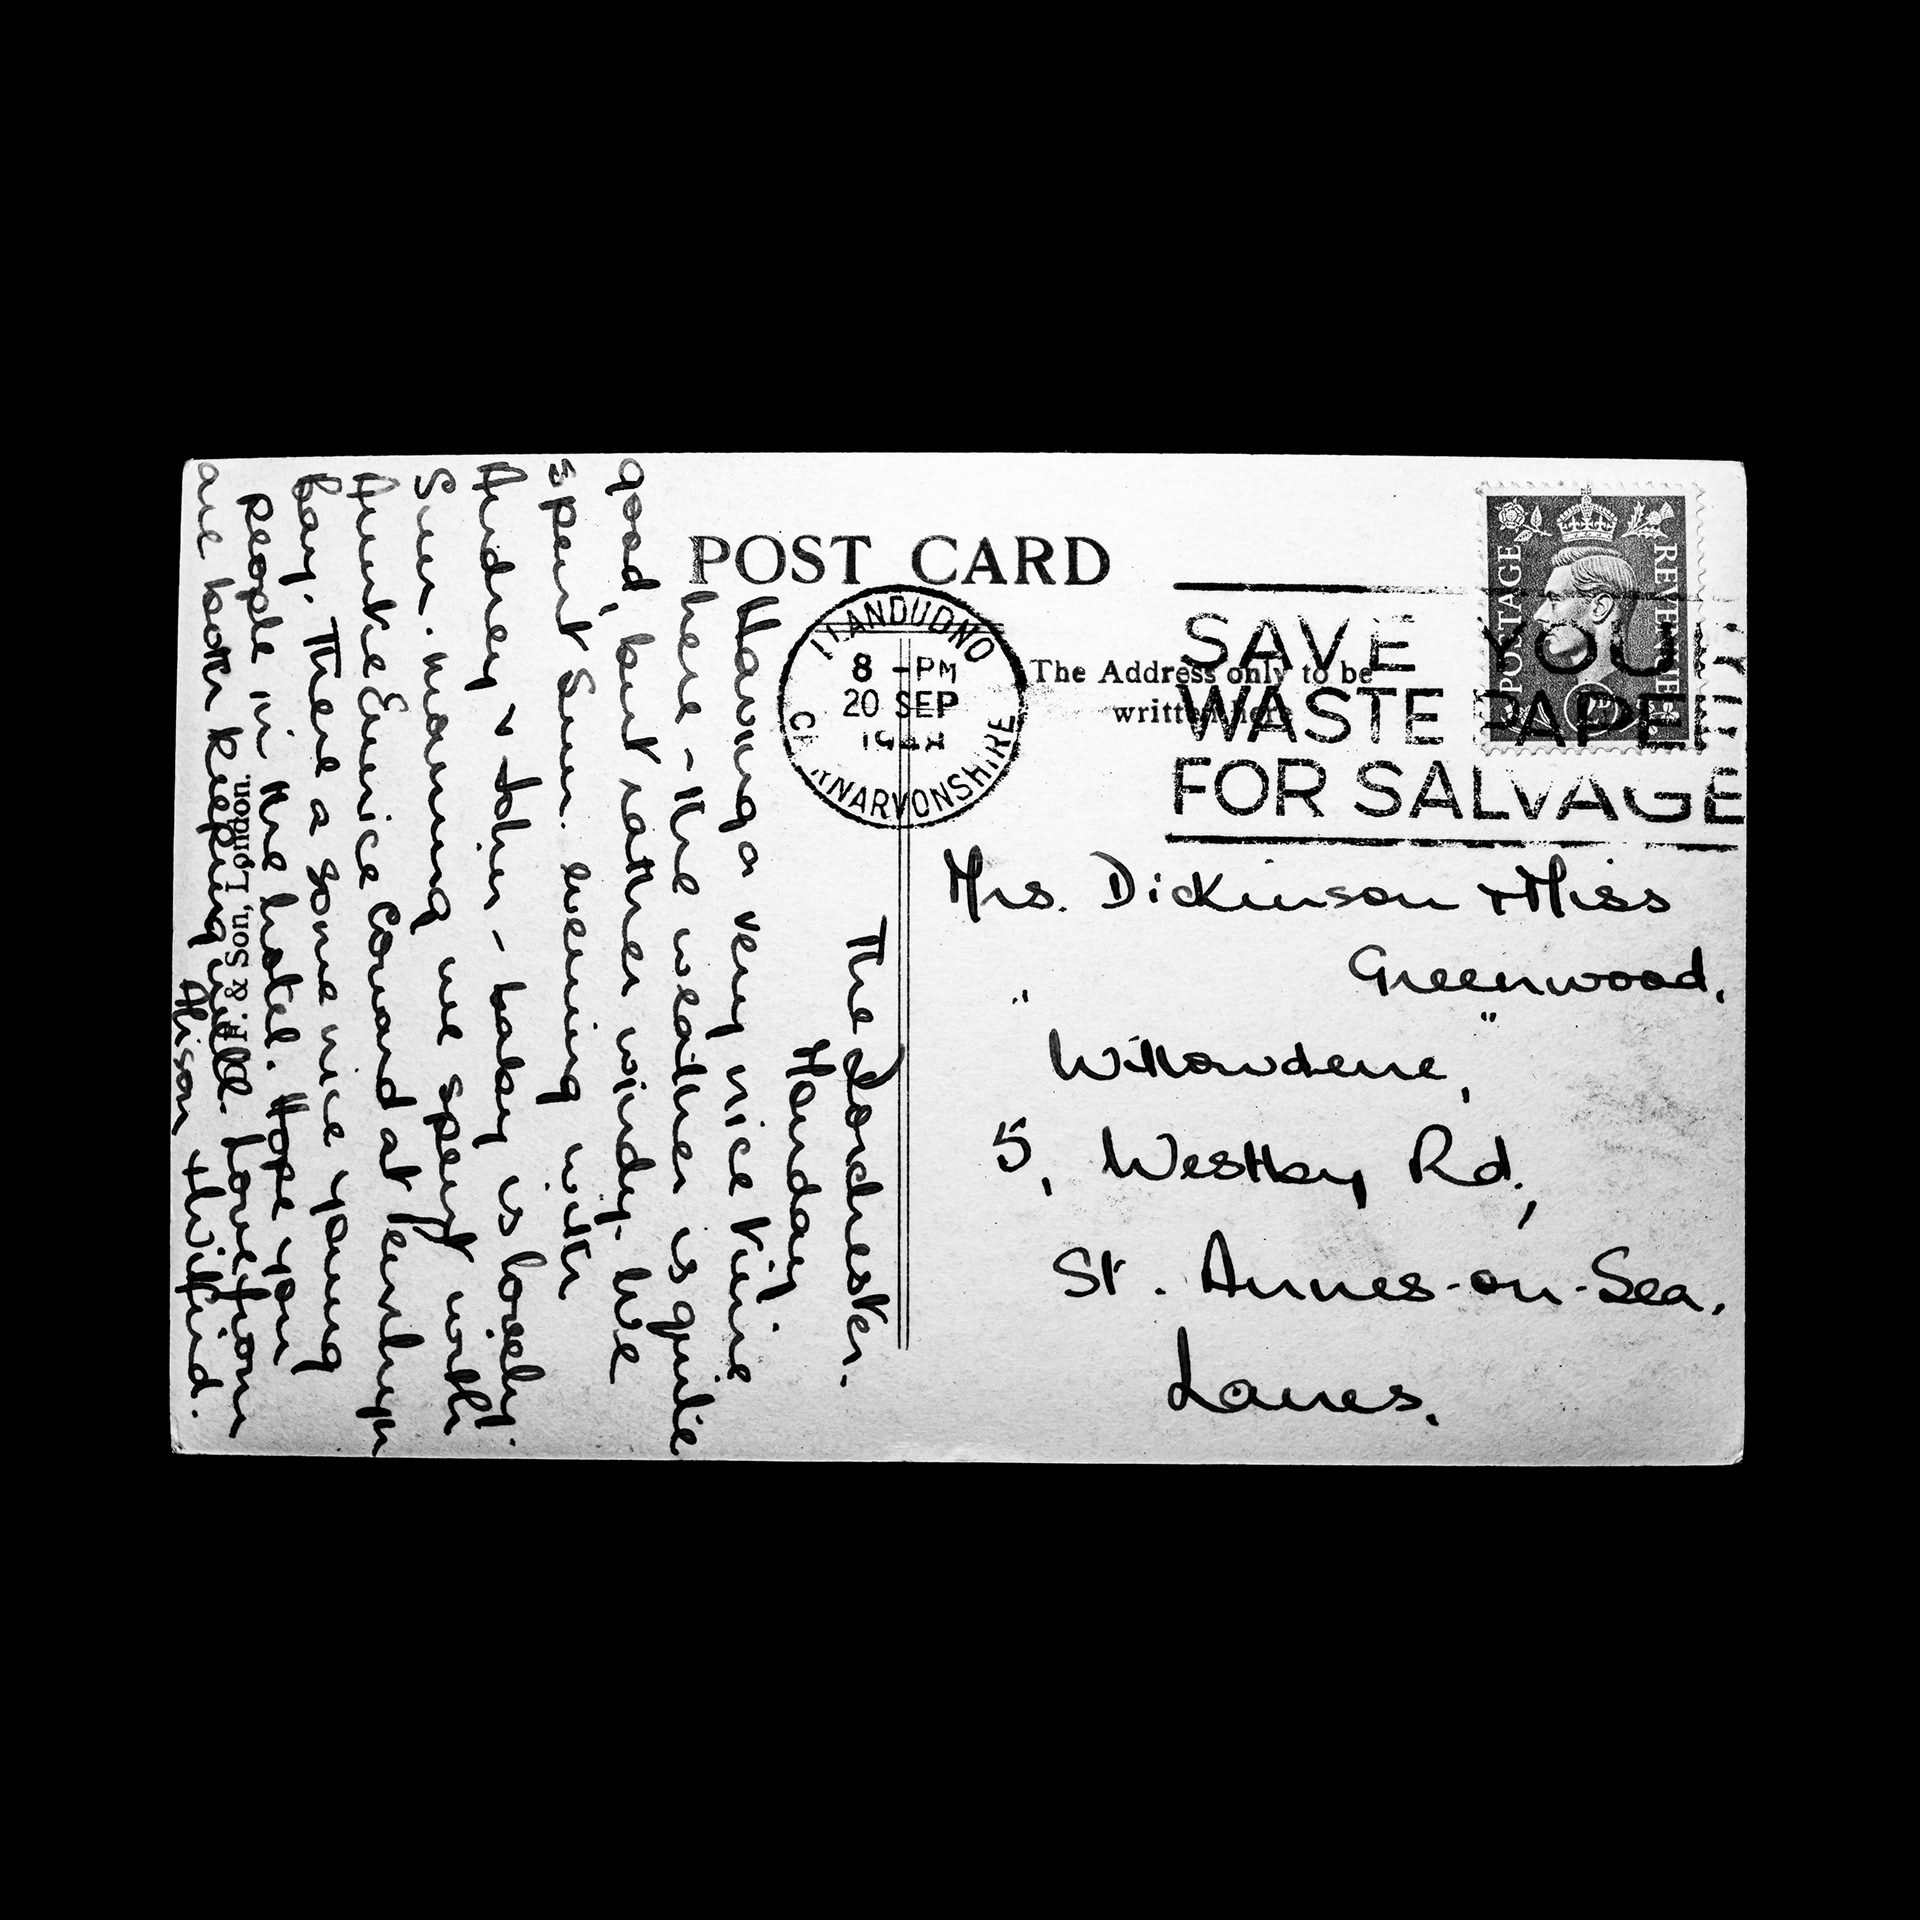 POST CARD
The Address only to be
written here
LLANDUDNO
8 - PM
20 SEP
1948
CAERNARVONSHIRE
SAVE YOUR
WASTE PAPER
FOR SALVAGE
POSTAGE
REVENUE
Mrs. Dickinson + Miss
Greenwood,
" Willowdene, "
5, Westby Rd.,
St. Annes-on-Sea.
Lancs.
The Dorchester.
Monday
Having a very nice time
here - the weather is quite
good, but rather windy. We
spent Sun. evening with
Audrey & John - baby is lovely.
Sun. morning we spent with
Auntie Eunice Coward at Penrhyn
Bay. There a some nice young
people in the hotel. Hope you
are both keeping well. Love from
Alison + Wilfrid.
F. & Son, London.